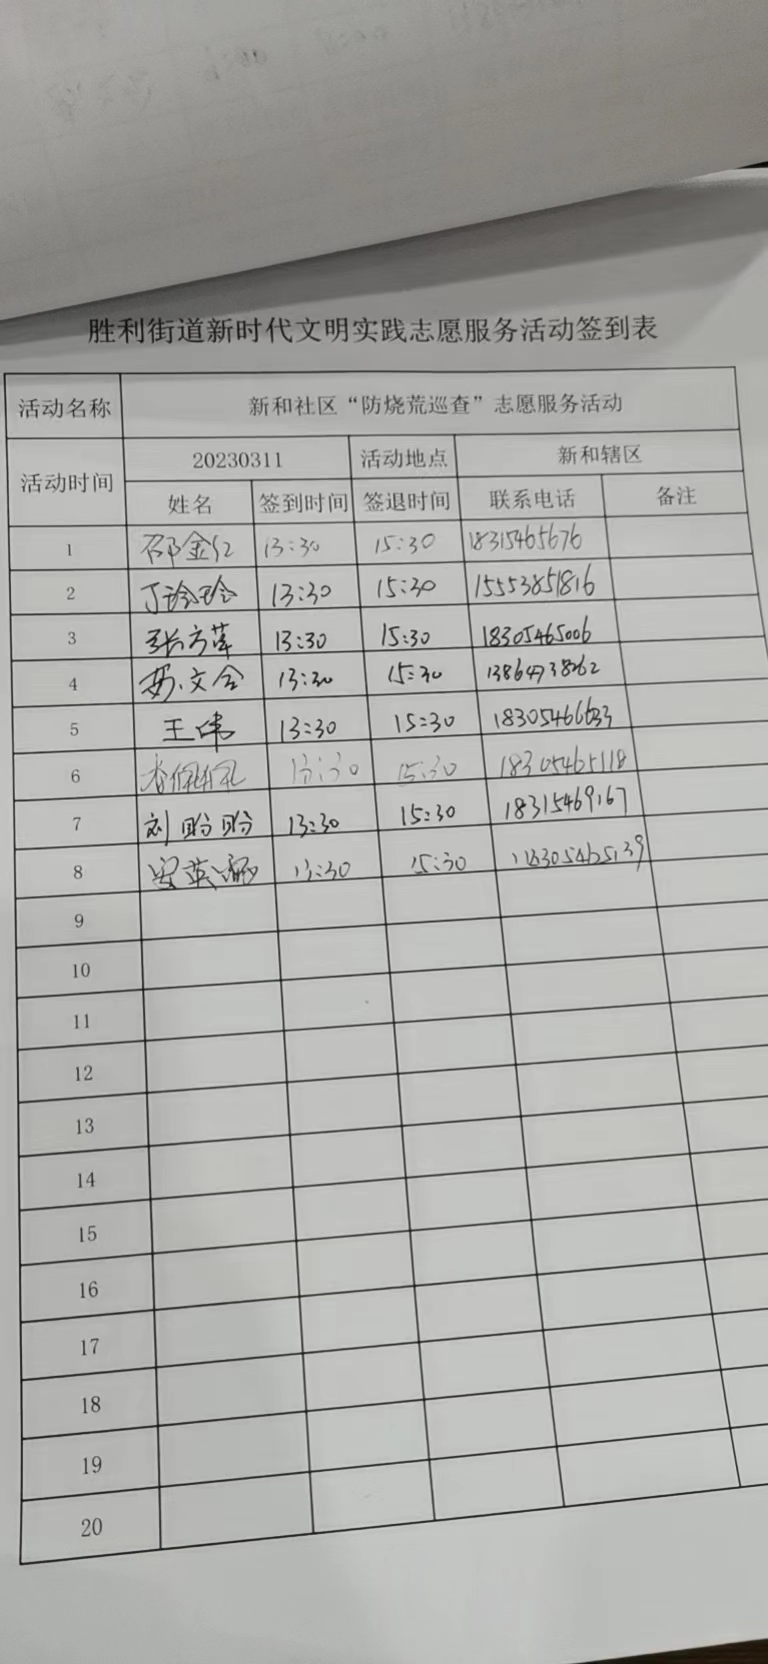 胜利街道新时代文明实践志愿服务活动签到表
活动名称 新和社区“防烧荒巡查”志愿服务活动
活动时间 20230311 活动地点 新和辖区
姓名 签到时间 签退时间 联系电话 备注
1 邵金红 13:30 15:30 18315465676
2 丁玲玲 13:30 15:30 15553851816
3 张方萍 13:30 15:30 18305465006
4 文会 13:30 15:30
5 王伟 13:30 15:30
6 李佩佩 13:30 15:30 18305465118
7 刘盼盼 13:30 15:30 18315469167
8 安英 13:30 15:30 18305465139
9
10
11
12
13
14
15
16
17
18
19
20